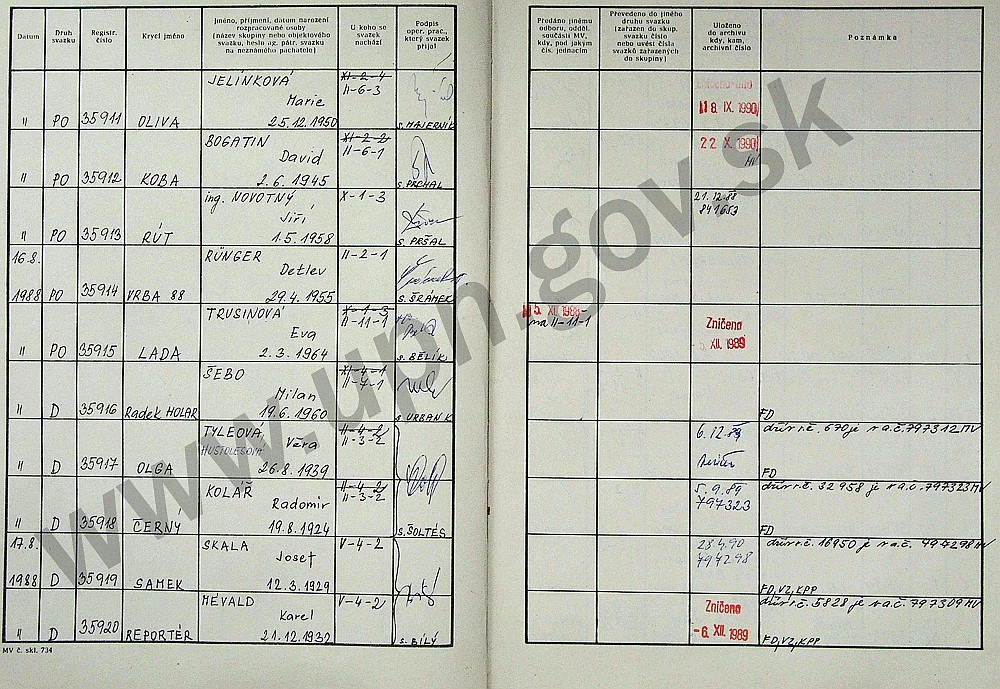 Datum
Druh svazku
Registr. číslo
Krycí jméno
Jméno, příjmení, datum narození
rozpracované osoby
(název skupiny nebo objektového
svazku, heslo ag. pátr. svazku
na neznámého pachatele)
U koho se
svazek
nachází
Podpis
oper. prac.,
který svazek
přijal
Předáno jinému
odboru, odděl.
součásti MV,
kdy, pod jakým
čís. jednacím
Převedeno do jiného
druhu svazku
(zařazen do skup.
svazku číslo
nebo uvést čísla
svazků zařazených
do skupiny)
Uloženo
do archivu
kdy, kam,
archivní číslo
Poznámka
JELÍNKOVÁ XI-2-4
Marie II-6-3
18. IX. 1990
" PO 35911 OLIVA 25.12.1950 s. MAJERNÍK
BOGATIN XI-2-2
David II-6-1
22 X. 1990
MV
" PO 35912 KOBA 2.6.1945 s. PRCHAL
ing. NOVOTNÝ X-1-3
Jiří
21.12.88
841653
" PO 35913 RÚT 1.5.1958 s. PRŠAL
16.8. RÜNGER II-2-1
Detlev
1988 PO 35914 VRBA 88 29.4.1955 s. ŠRÁMEK
TRUSINOVÁ X-1-3
Eva II-11-1
5. XII. 1988
na II-11-1
Zničeno
5. XII. 1989
" PO 35915 LADA 2.3.1964 s. BĚLÍK
ŠEBO XI-4-1
Milan II-4-1
" D 35916 Radek HOLAR 19.6.1960 s. URBAN K.
FD
TYLEOVÁ II-4-2
HUSTOLESOVÁ Věra II-3-2
6.12.89
důvr.č. 670 je v a.č. 797312 MV
" D 35917 OLGA 26.8.1939
FD
KOLÁŘ II-4-2
Radomír II-3-2
5.9.89
797323
důvr.č. 32958 je v a.č. 797323 MV
" D 35918 ČERNÝ 19.8.1924 s. ŠOLTÉS
FD
17.8. SKALA V-4-2
Josef
28.4.90
797298
důvr.č. 16950 je v a.č. 797298 MV
1988 D 35919 SAMEK 12.3.1929
FD, VZ, KPP
HÉVALD V-4-2
Karel
Zničeno
-6. XII. 1989
důvr.č. 5828 je v a.č. 797309 MV
" D 35920 REPORTÉR 21.12.1932 s. BÍLÝ
FD, VZ, KPP
MV č. skl. 734
www.upn.gov.sk